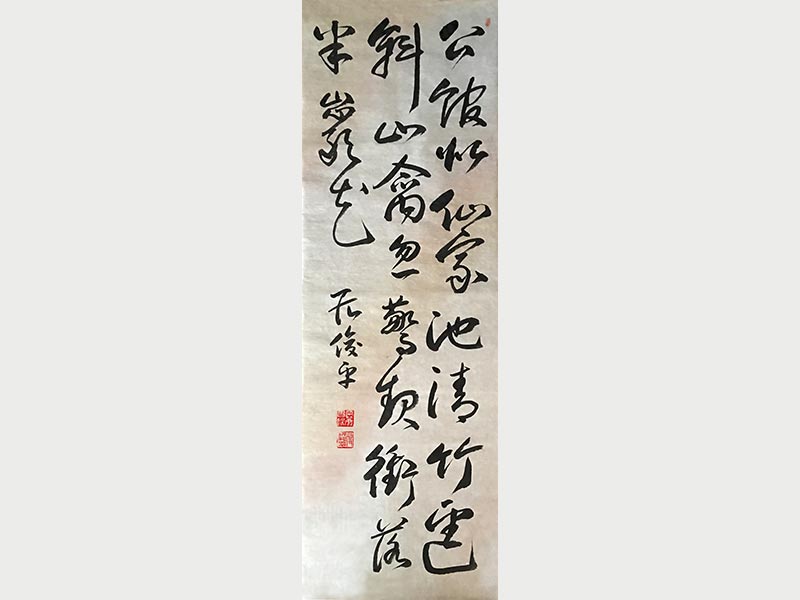 公館似仙家池清竹逕
斜山禽忽驚起衝落
半巖花
俊平